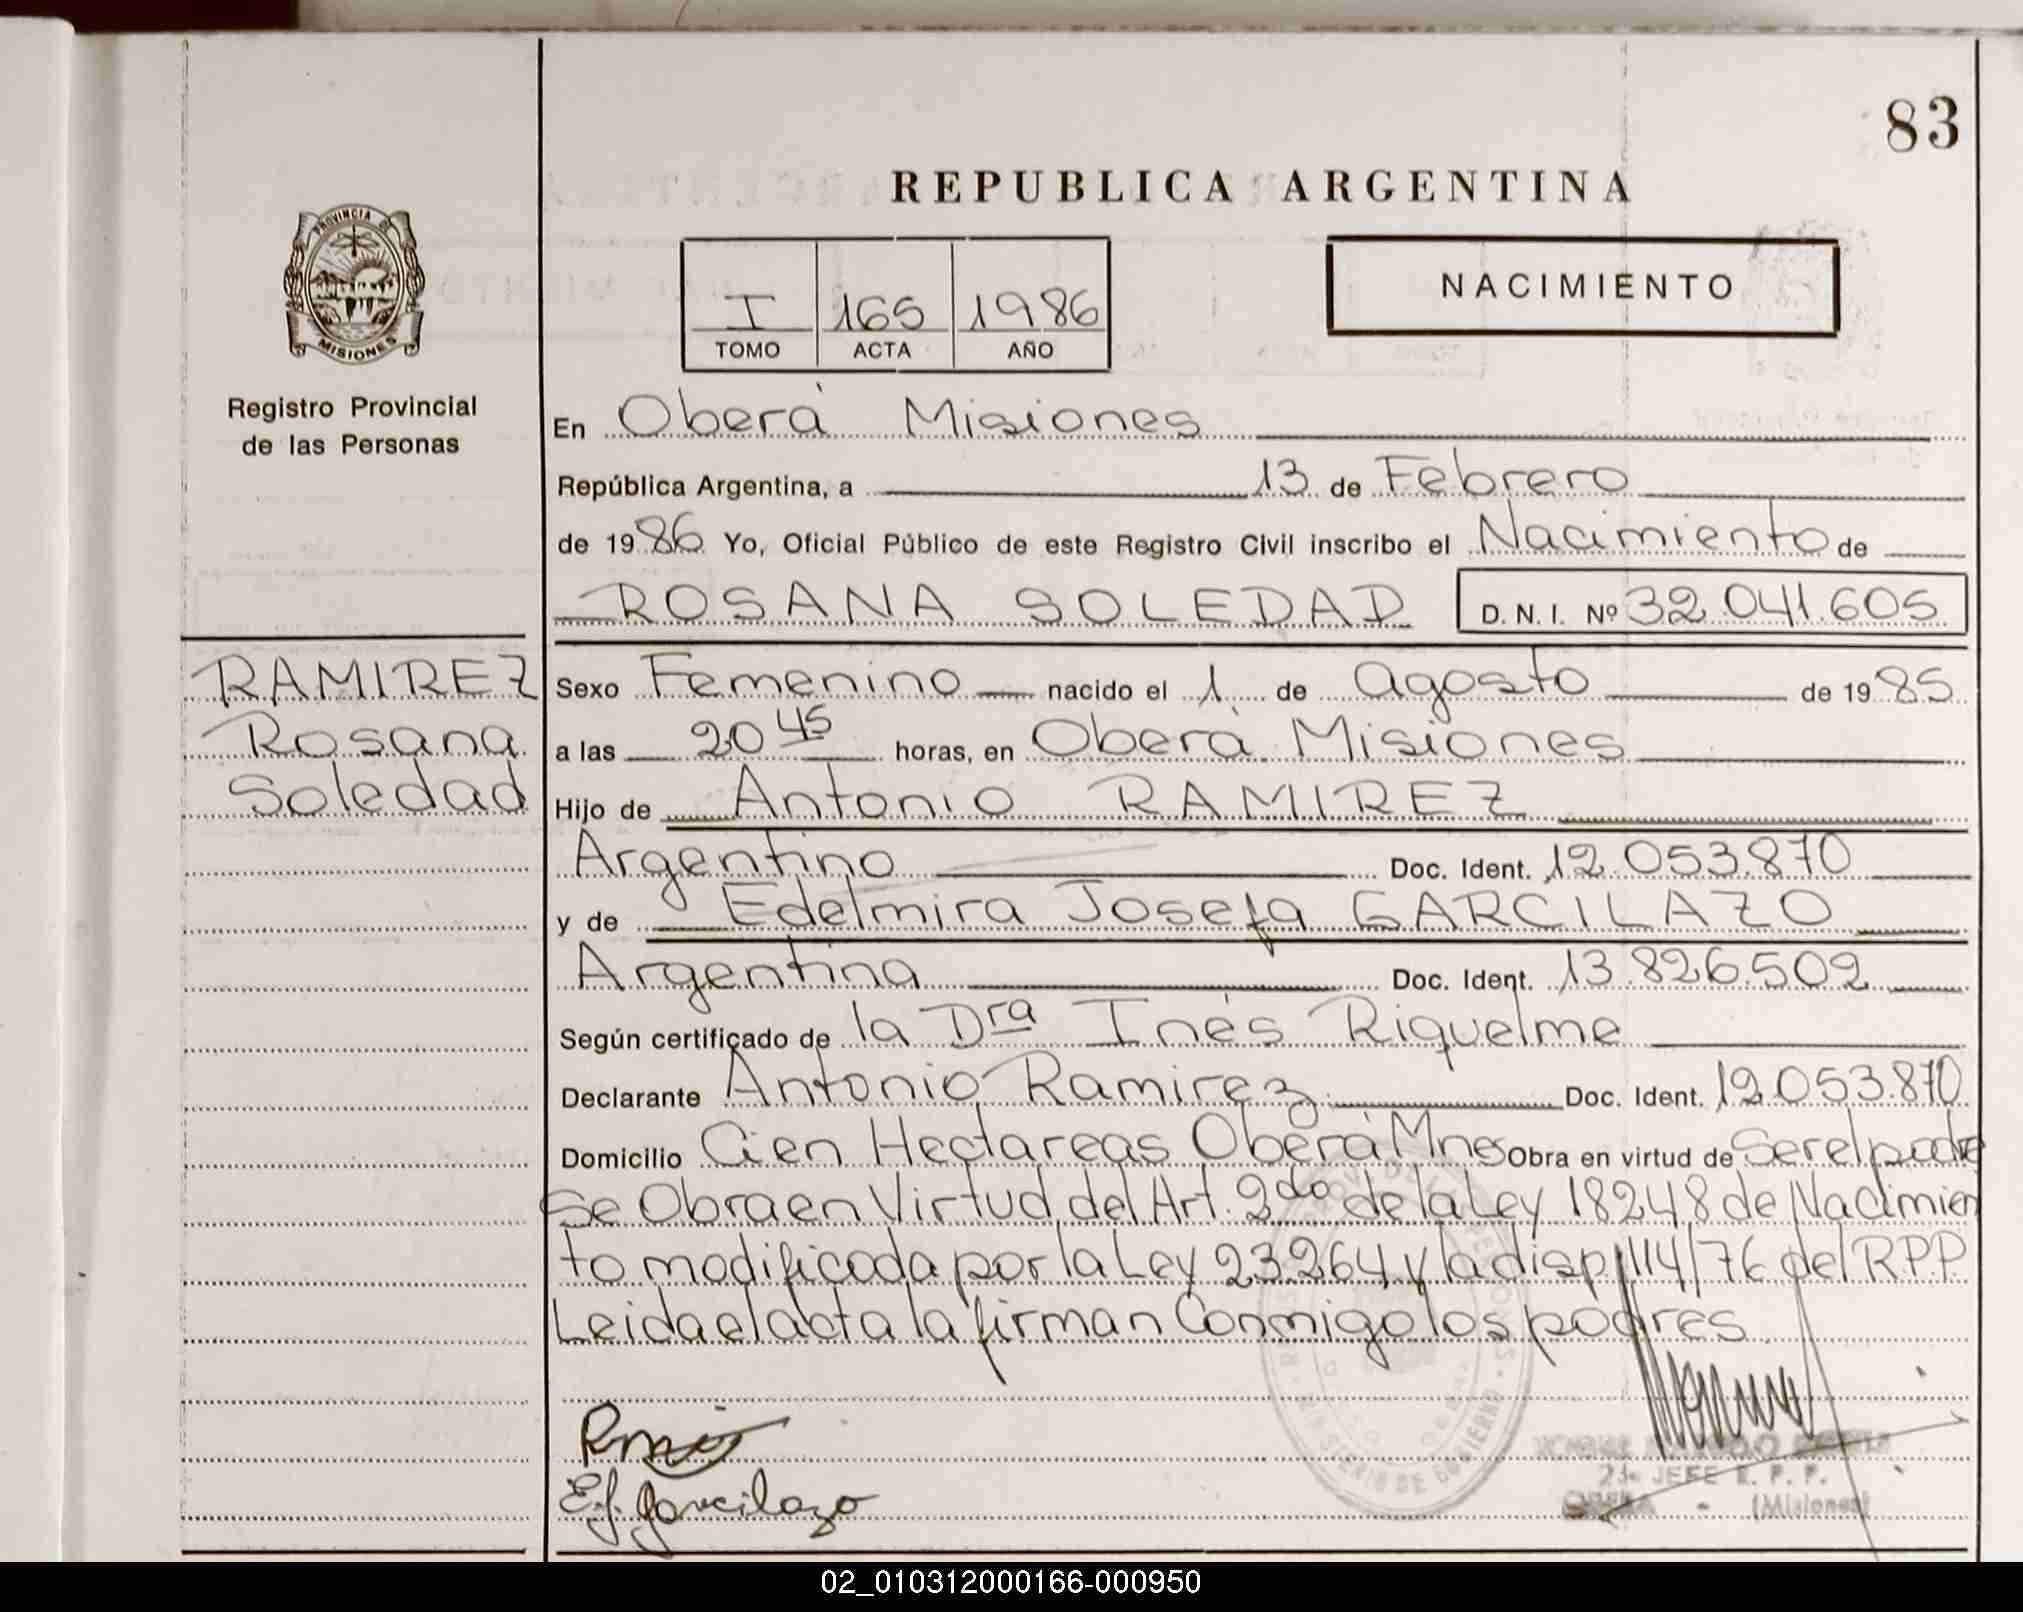 83
REPUBLICA ARGENTINA
PROVINCIA DE
MISIONES
I 165 1986
TOMO ACTA AÑO
NACIMIENTO
Registro Provincial
de las Personas
En Oberá Misiones
República Argentina, a 13 de Febrero
de 1986 Yo, Oficial Público de este Registro Civil inscribo el Nacimiento de
ROSANA SOLEDAD D. N. I. Nº 32.041.605
RAMIREZ
Rosana
Soledad
Sexo Femenino nacido el 1 de agosto de 1985
a las 20 45 horas, en Oberá Misiones
Hijo de Antonio RAMIREZ
Argentino Doc. Ident. 12.053.870
y de Edelmira Josefa GARCILAZO
Argentina Doc. Ident. 13.826.502
Según certificado de la Dra Inés Riquelme
Declarante Antonio Ramirez Doc. Ident. 12.053.870
Domicilio Cien Hectareas Oberá Mnes Obra en virtud de Ser el padre
Se Obra en Virtud del Art. 2do de la Ley 18248 de Nacimien
to modificada por la Ley 23.264 y la disp 114/76 del R.P.P
Leida el acta la firman Conmigo los padres
E.J. Garcilazo
DE GOBIERNO
JEFE R. P. P.
OBERA - (Misiones)
02_010312000166-000950